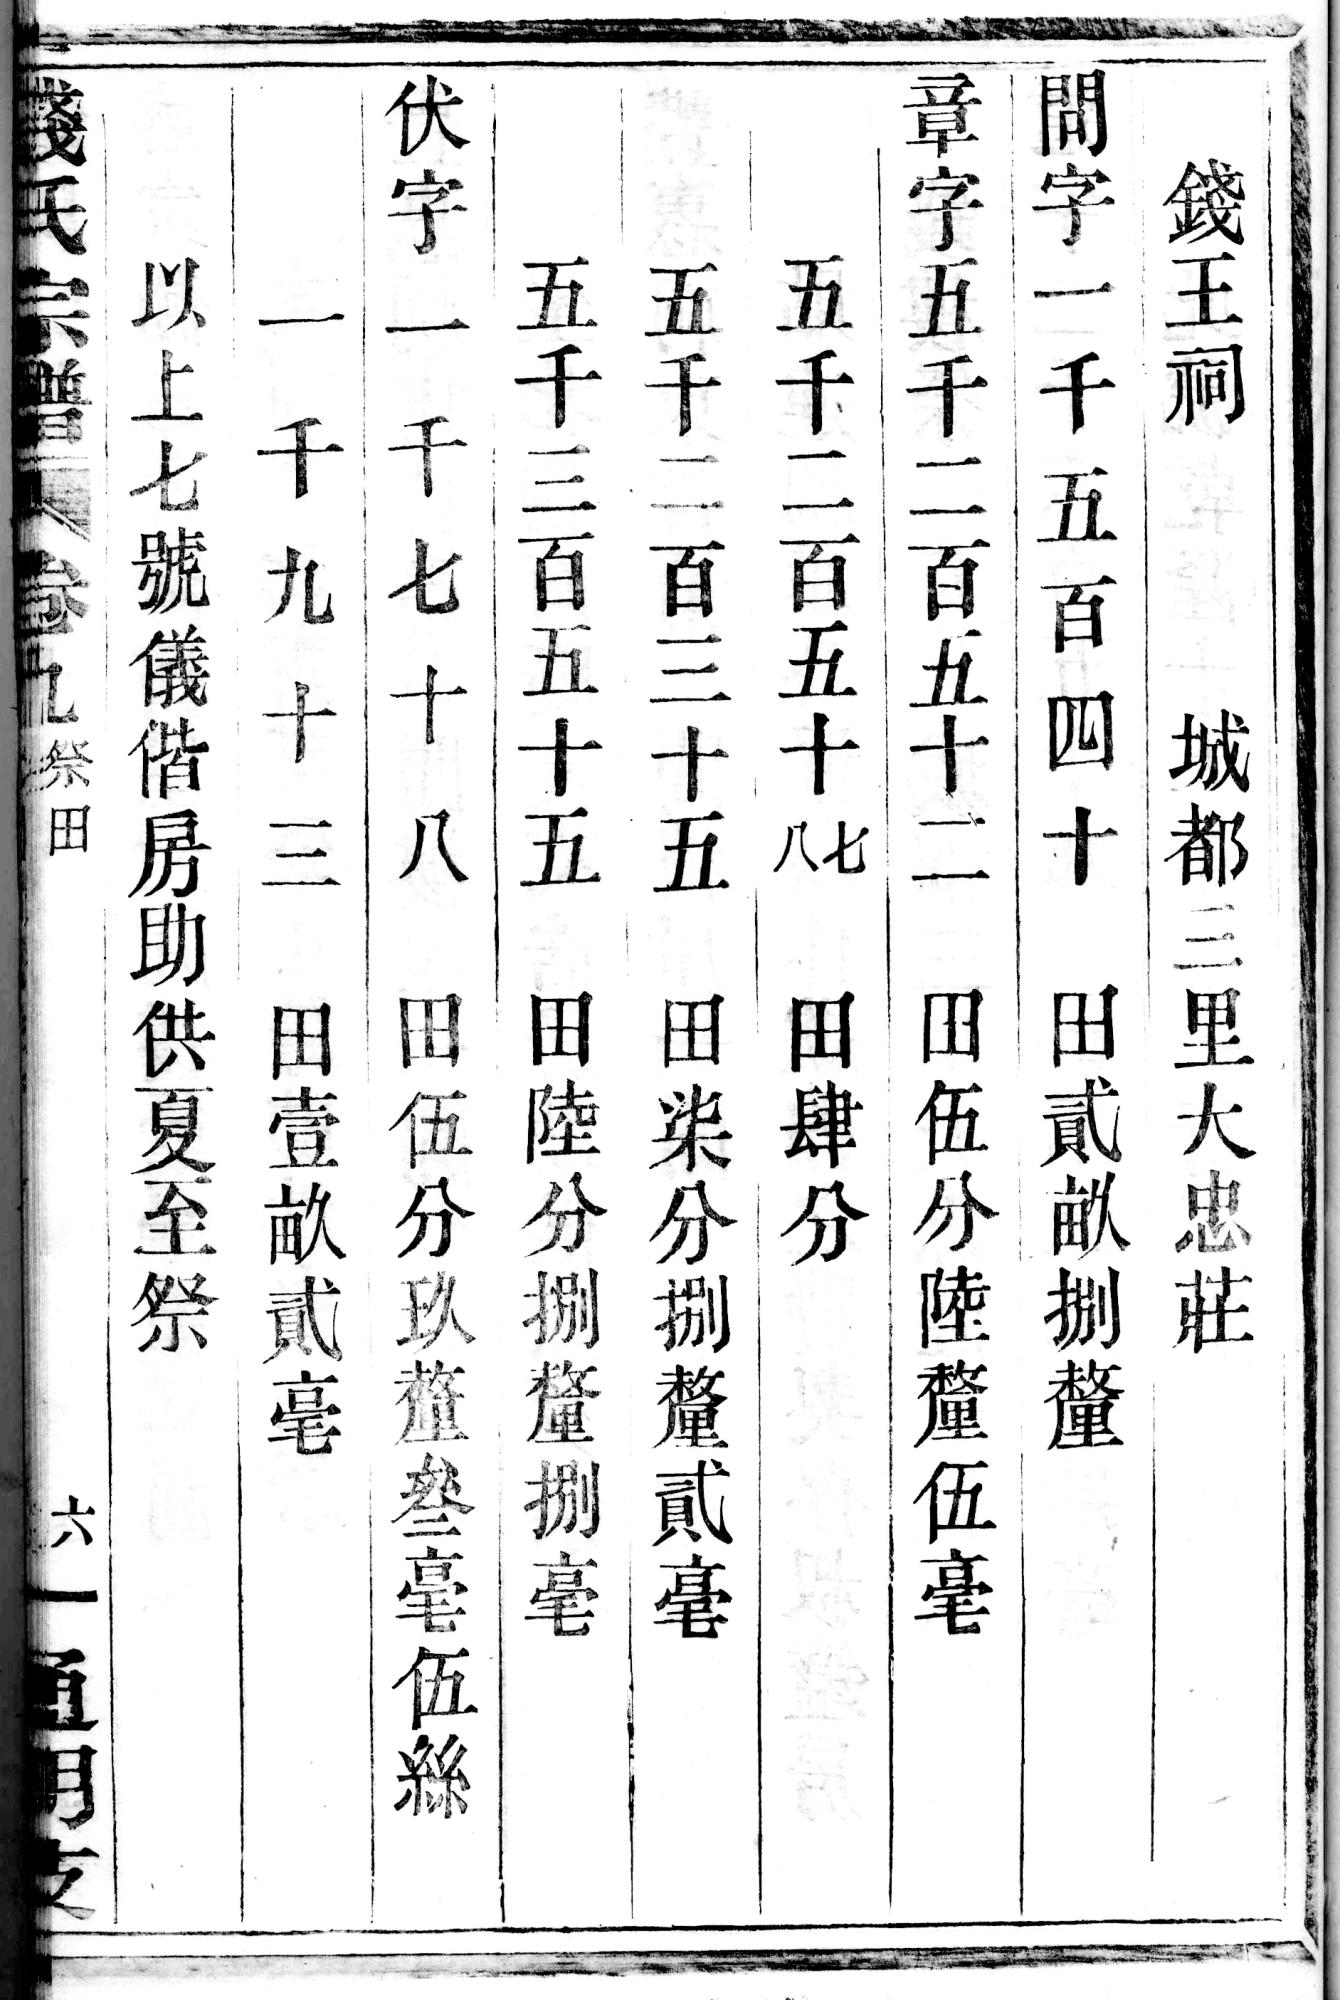 錢王祠　城都三里大忠莊
問字一千五百四十　田貳畝捌釐
章字五千二百五十二　田伍分陸釐伍毫
五千二百五十七八　田肆分
五千二百三十五　田柒分捌釐貳毫
五千三百五十五　田陸分捌釐捌毫
伏字一千七十八　田伍分玖釐叄毫伍絲
一千九十三　田壹畝貳毫
以上七號儀偕房助供夏至祭
錢氏宗譜　卷九　祭田　六一　通明支